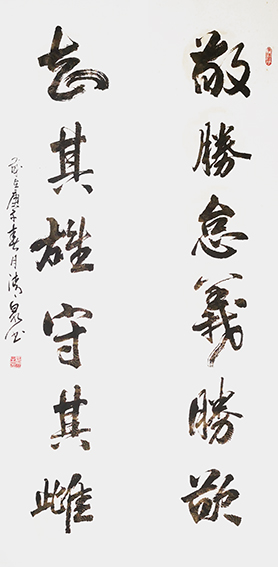 敬勝怠義勝欲
知其雄守其雌
歲在庚子春月泉書